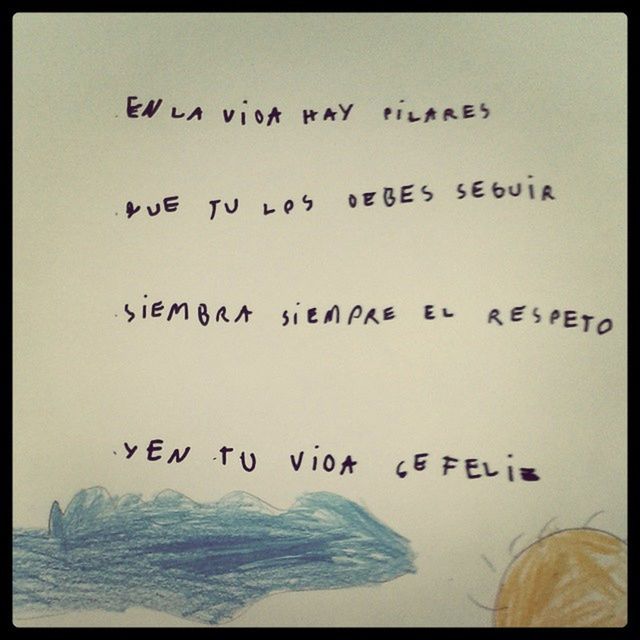 EN LA ViDA HAY PiLARES
QUE TU LOS DEBES SEGUiR
SiEMBRA SiEMPRE EL RESPETO
Y EN TU ViDA CE FELiZ